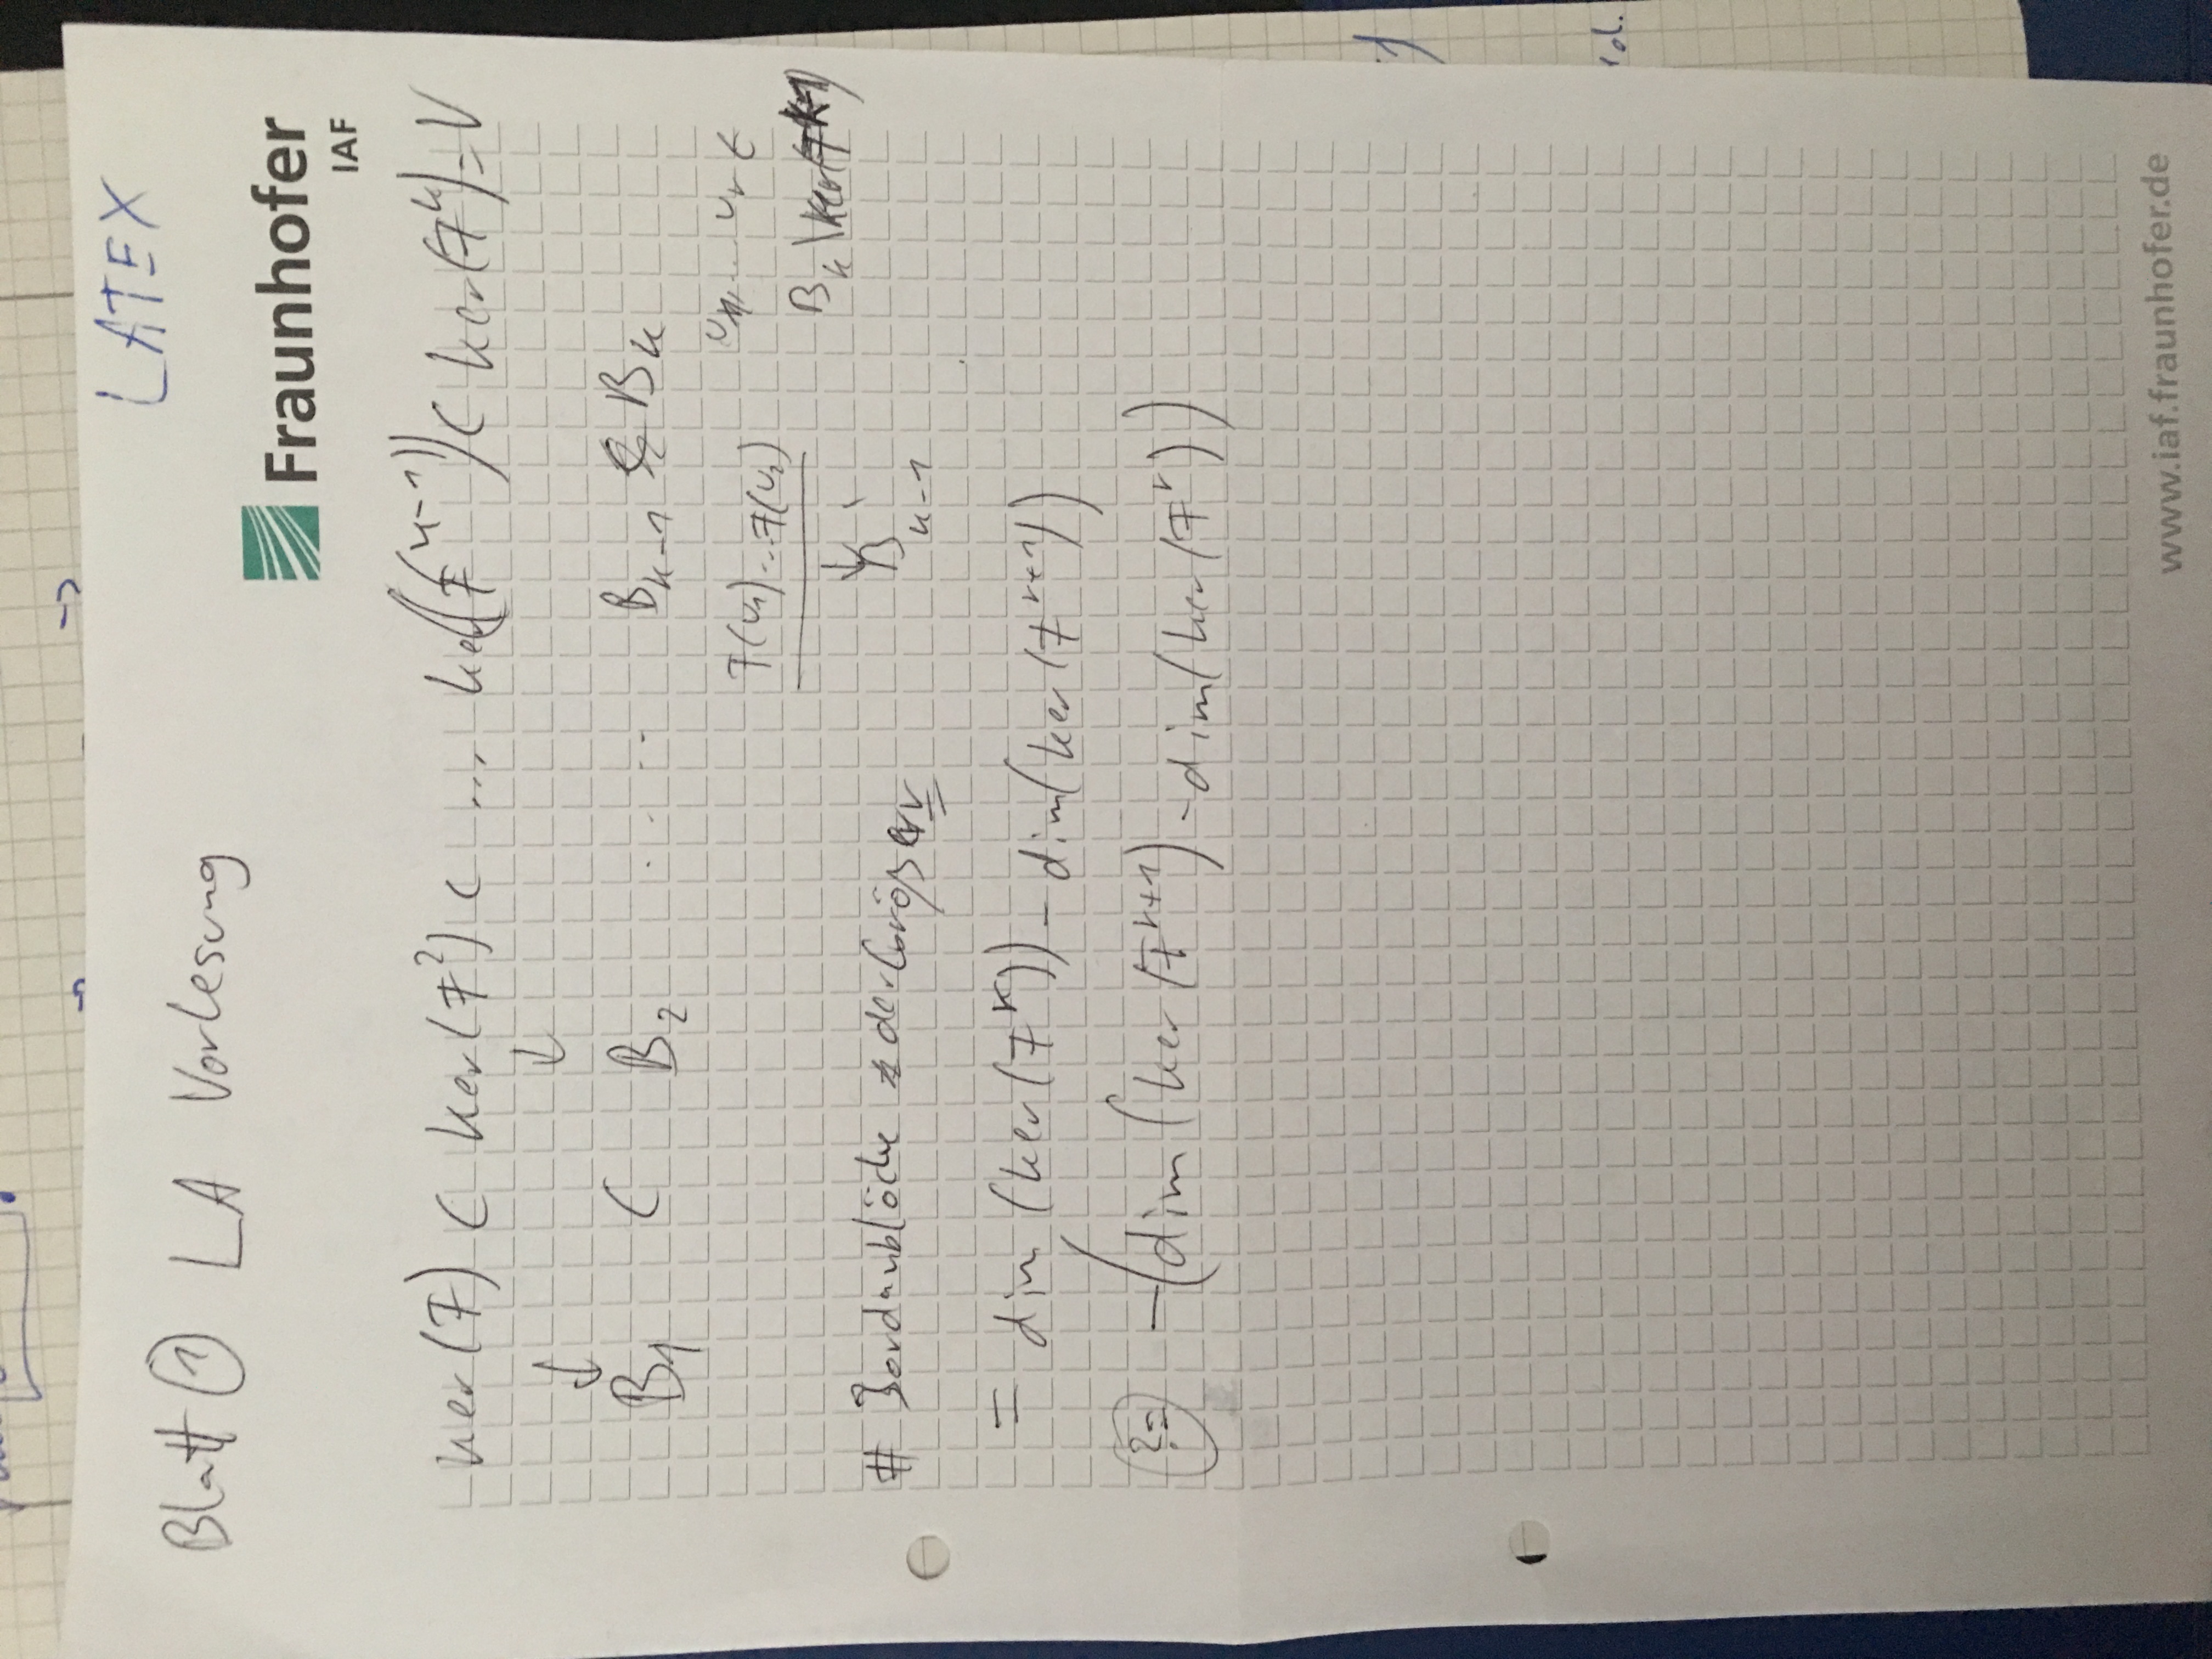 LATEX
Blatt ① LA Vorlesung
Fraunhofer
IAF
ker(F) ⊂ ker(F²) ⊂ ... ker(F^(k-1)) ⊂ ker(F^k) = V
↓ ↓
B₁ ⊂ B₂ ..... B_k-1 B_k
F(v₁)...F(v₂) v₁,... v_r ∈
B_k \ ker(F^k-1)
↓
B_k-1
# Jordanblöcke der Größe r
= dim (ker(F^r)) - dim(ker(F^r+1))
?= -(dim(ker(F^r+1) - dim(ker(F^r))
www.iaf.fraunhofer.de